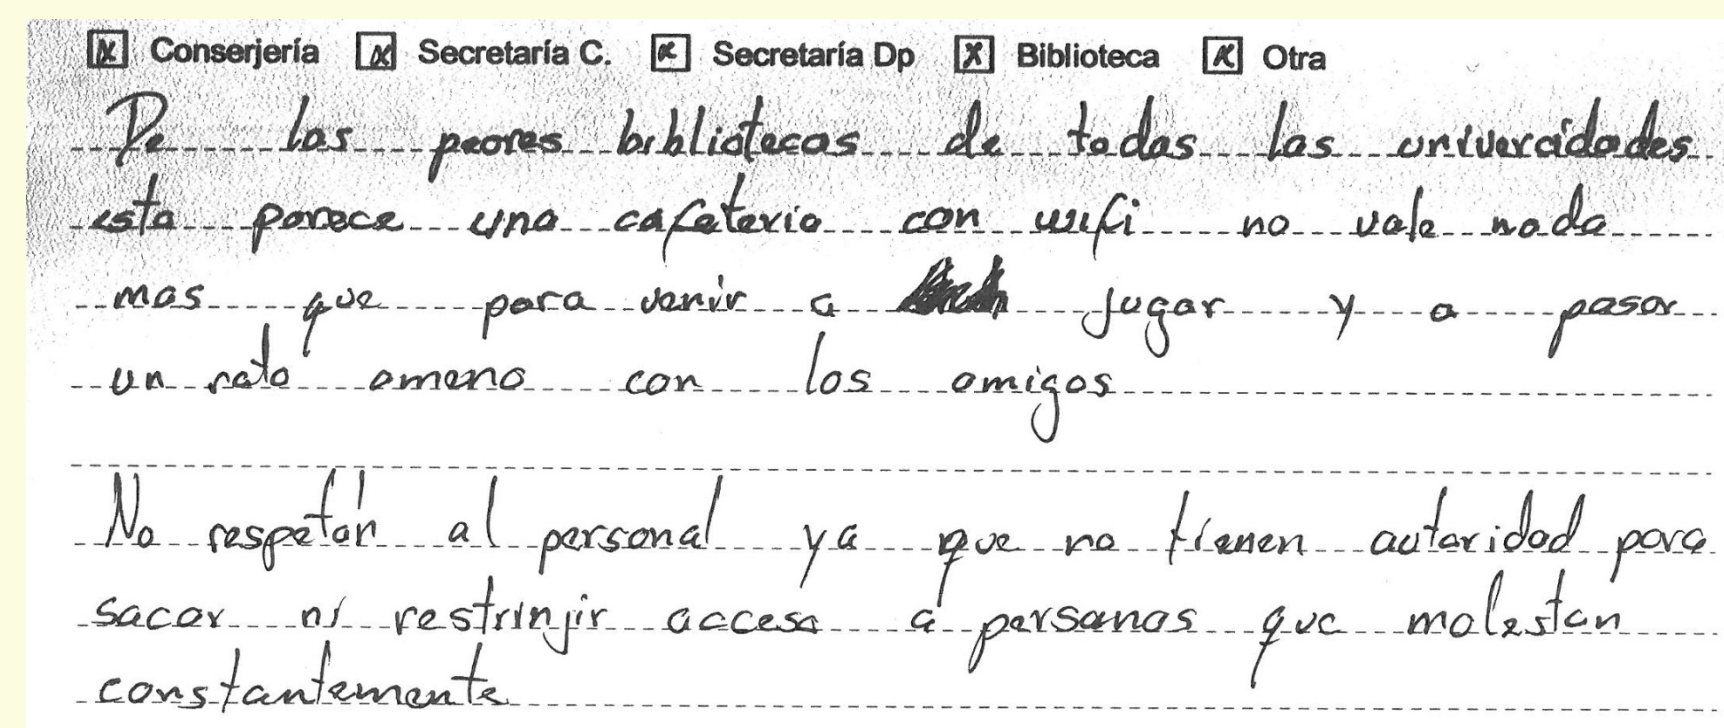 Conserjería Secretaría C. Secretaría Dp Biblioteca Otra
De las peores bibliotecas de todas las univercidades
esta parece una cafeteria con wifi no vale nada
mas que para venir a jugar y a pasar
un rato ameno con los amigos
No respetan al personal ya que no tienen autoridad para
sacar ni restrinjir acceso a personas que molestan
constantemente